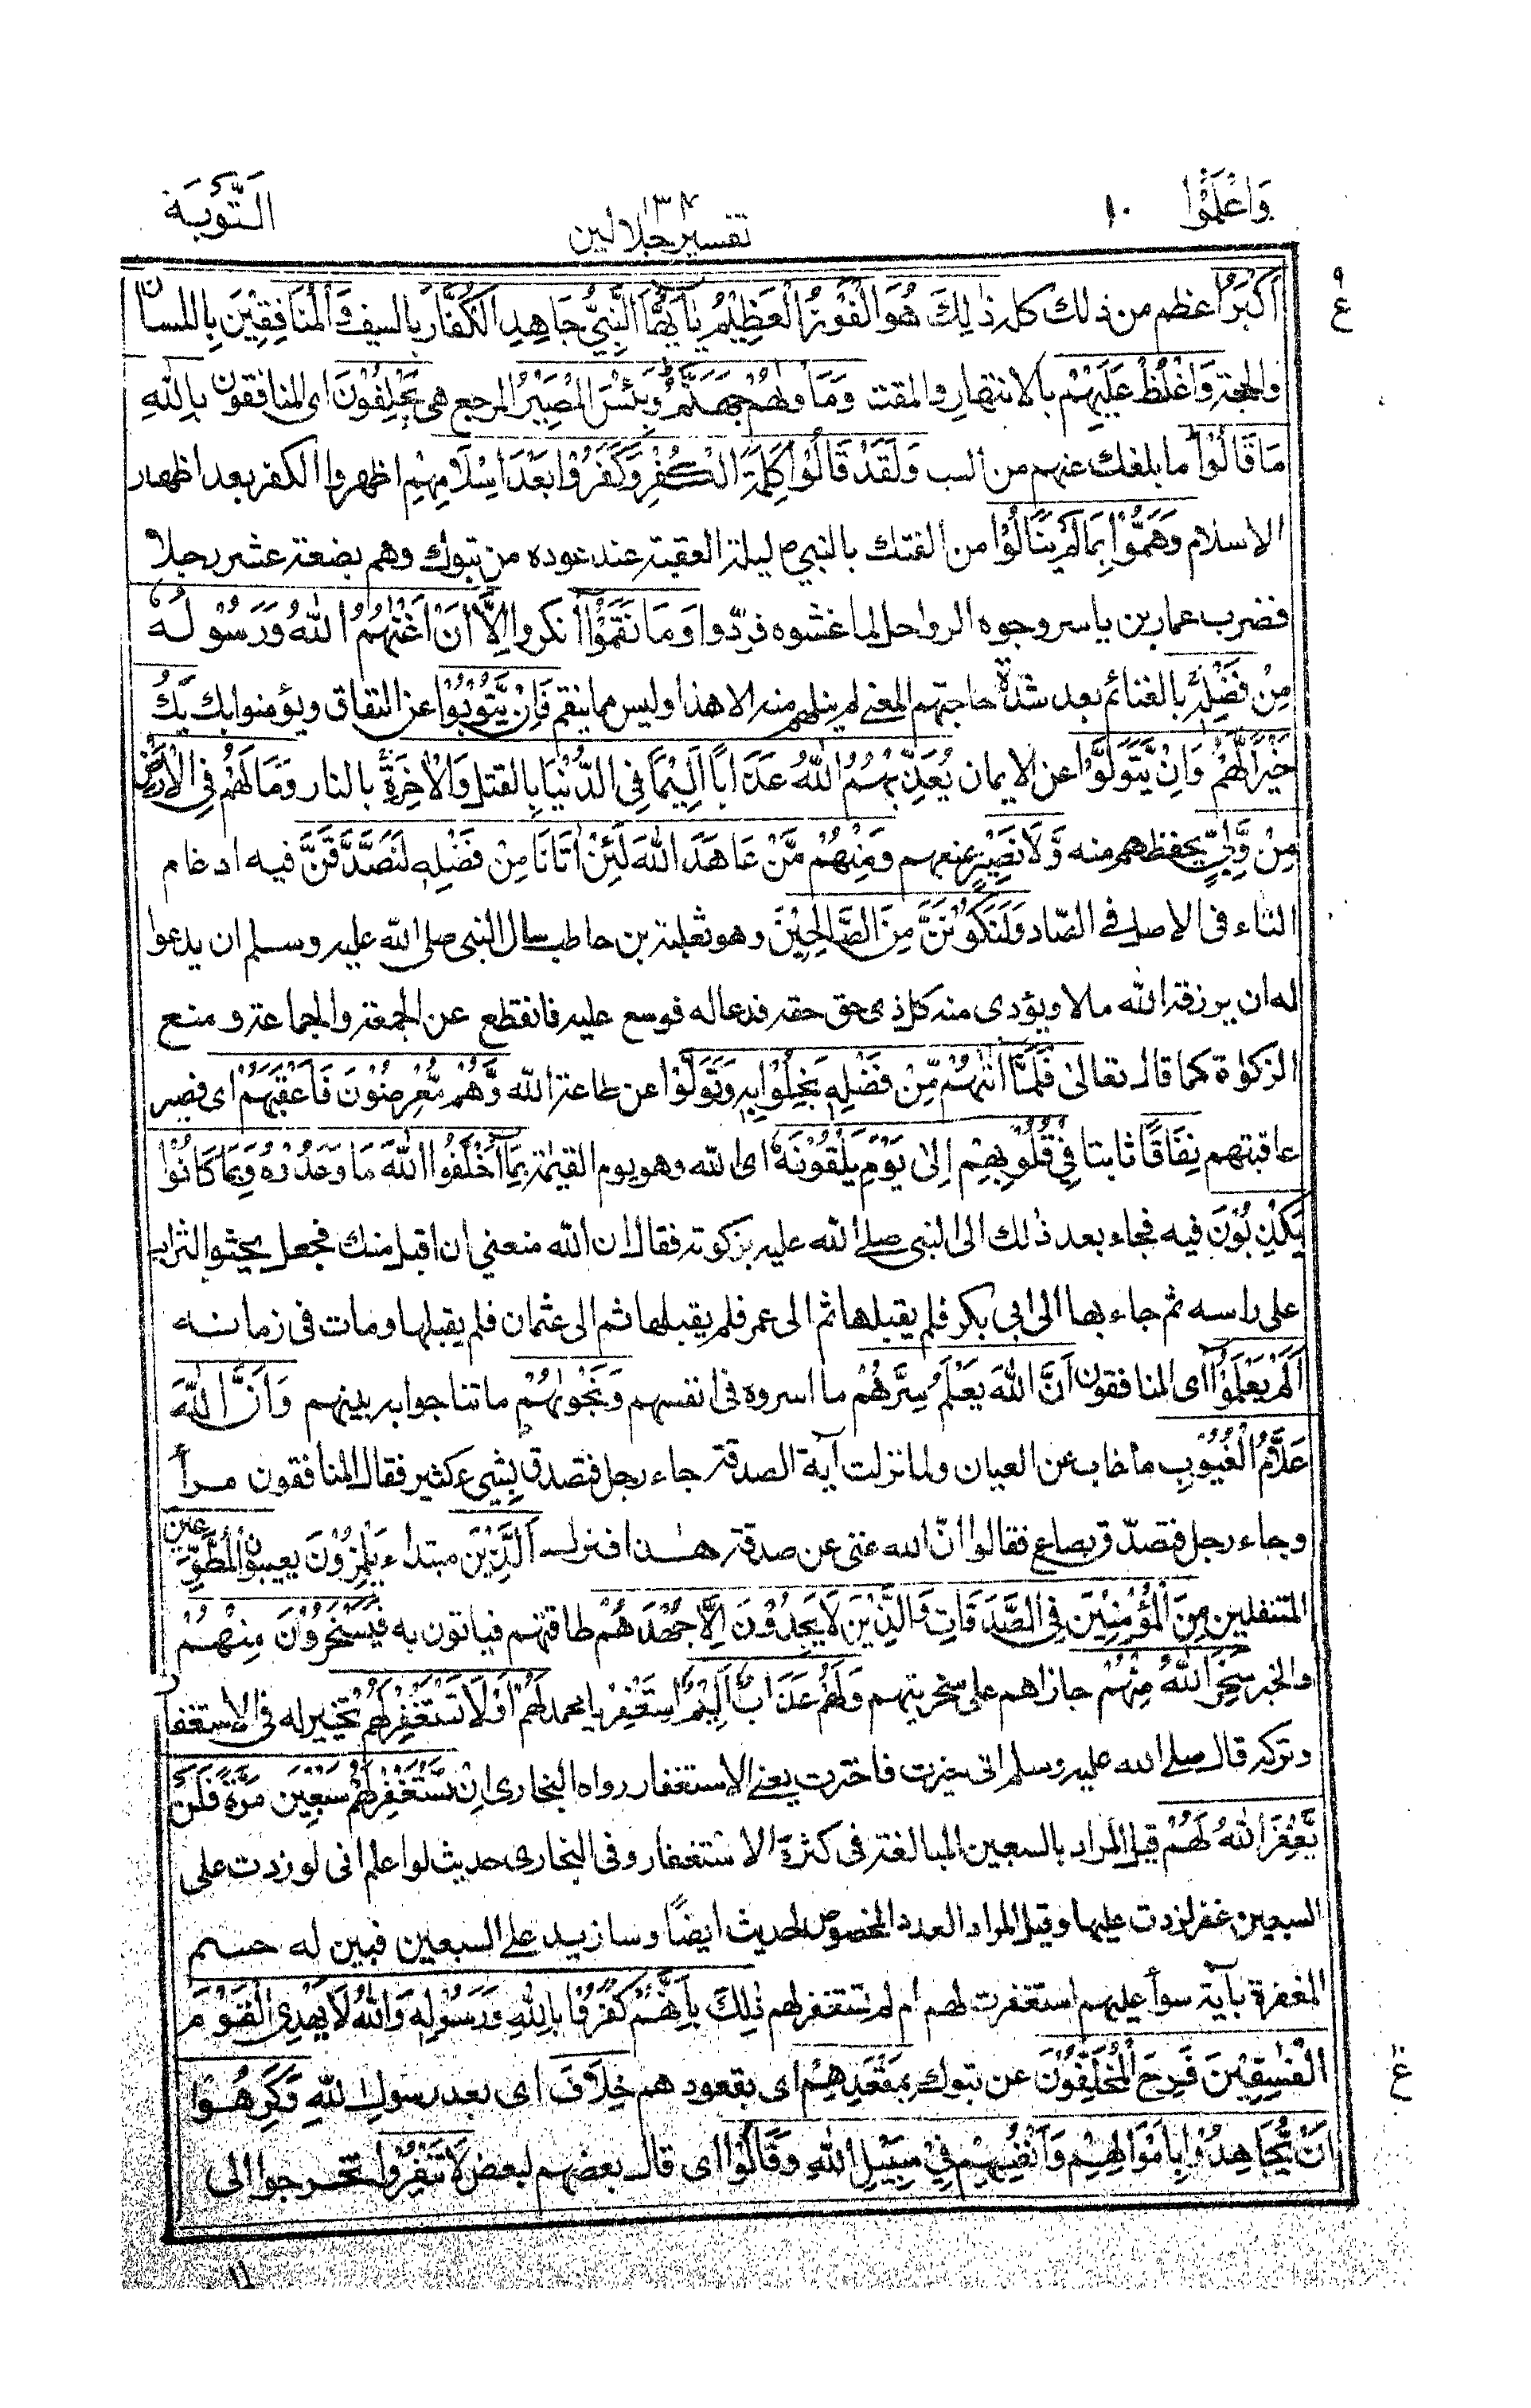 وَاعْلَمُوْا ١٠
تفسير جلالين
التَّوْبَة
اَكْبَرُ اعظم من ذلك كله ذٰلِكَ هُوَ الْفَوْزُ الْعَظِيْمُ يٰٓاَيُّهَا النَّبِيُّ جَاهِدِ الْكُفَّارَ بالسيف وَالْمُنَافِقِيْنَ بِاللسان
والحجة وَاغْلُظْ عَلَيْهِمْ بالانتهار والمقت وَمَاْوٰىهُمْ جَهَنَّمُ وَبِئْسَ الْمَصِيْرُ المرجع هى يَحْلِفُوْنَ اى المنافقون بِاللّٰهِ
مَا قَالُوْا ما بلغك عنهم من السب وَلَقَدْ قَالُوْا كَلِمَةَ الْكُفْرِ وَكَفَرُوْا بَعْدَ اِسْلَامِهِمْ اظهروا الكفر بعد اظهار
الاسلام وَهَمُّوْا بِمَا لَمْ يَنَالُوْا من الفتك بالنبي ص ليلة العقبة عند عوده من تبوك وهم بضعة عشر رجلا
فضرب عمار بن ياسر وجوه الرواحل لما غشوه فردّوا وَمَا نَقَمُوْٓا انكروا اِلَّآ اَنْ اَغْنٰىهُمُ اللّٰهُ وَرَسُوْلُهٗ
مِنْ فَضْلِهٖ بالغنائم بعد شدة حاجتهم المعنى لم ينلهم منه الا هذا وليس مما ينقم فَاِنْ يَّتُوْبُوْا عن النفاق ويؤمنوا بك يَكُ
خَيْرًا لَّهُمْ وَاِنْ يَّتَوَلَّوْا عن الايمان يُعَذِّبْهُمُ اللّٰهُ عَذَابًا اَلِيْمًا فِى الدُّنْيَا بِالقتل وَالْاٰخِرَةِ بالنار وَمَا لَهُمْ فِى الْاَرْضِ
مِنْ وَّلِيٍّ يحفظهم منه وَّلَا نَصِيْرٍ يمنعهم وَمِنْهُمْ مَّنْ عَاهَدَ اللّٰهَ لَئِنْ اٰتَانَا مِنْ فَضْلِهٖ لَنَصَّدَّقَنَّ فيه ادغام
التاء فى الاصل فى الصّاد وَلَنَكُوْنَنَّ مِنَ الصَّالِحِيْنَ وهو ثعلبة بن حاطب سال النبى صلى الله عليه وسلم ان يدعوا
له ان يرزقه الله مالا ويؤدى منه كل ذى حق حقه فدعا له فوسع عليه فانقطع عن الجمعة والجماعة ومنع
الزكوٰة كما قال تعالىٰ فَلَمَّآ اٰتٰىهُمْ مِّنْ فَضْلِهٖ بَخِلُوْا بِهٖ وَتَوَلَّوْا عن طاعة الله وَّهُمْ مُّعْرِضُوْنَ فَاَعْقَبَهُمْ اى فصير
عاقبتهم نِفَاقًا ثابتا فِيْ قُلُوْبِهِمْ اِلىٰ يَوْمِ يَلْقَوْنَهٗ اى الله وهو يوم القيٰمة بِمَآ اَخْلَفُوا اللّٰهَ مَا وَعَدُوْهُ وَبِمَا كَانُوْا
يَكْذِبُوْنَ فيه فجاء بعد ذٰلك الى النبى صلى الله عليه بزكوته فقال ان الله منعنى ان اقبل منك فجعل يحثو التراب
على راسه ثم جاء بها الى ابى بكر فلم يقبلها ثم الى عمر فلم يقبلها ثم الى عثمان فلم يقبلها ومات فى زمانه
اَلَمْ يَعْلَمُوْٓا اى المنافقون اَنَّ اللّٰهَ يَعْلَمُ سِرَّهُمْ ما اسروه فى انفسهم وَنَجْوٰىهُمْ ما تناجوا به بينهم وَاَنَّ اللّٰهَ
عَلَّامُ الْغُيُوْبِ ما غاب عن العيان ولما نزلت آية الصدقة جاء رجل فتصدق بشىء كثير فقال المنافقون مرأ
وجاء رجل فتصدّق بصاع فقالوا انّ الله غنى عن صدقة هذا فنزل اَلَّذِيْنَ مبتداء يَلْمِزُوْنَ يعيبون الْمُطَّوِّعِيْنَ
المتنفلين مِنَ الْمُؤْمِنِيْنَ فِى الصَّدَقَاتِ وَالَّذِيْنَ لَا يَجِدُوْنَ اِلَّا جُهْدَهُمْ طاقتهم فياتون به فَيَسْخَرُوْنَ مِنْهُمْ
والخبر سَخِرَ اللّٰهُ مِنْهُمْ جازاهم على سخريتهم وَلَهُمْ عَذَابٌ اَلِيْمٌ اِسْتَغْفِرْ يا محمد لَهُمْ اَوْ لَا تَسْتَغْفِرْ لَهُمْ تخيير له فى الاستغفار
وتركه قال صلى الله عليه وسلم انى خيرت فاخترت يعنى الاستغفار رواه البخارى اِنْ تَسْتَغْفِرْ لَهُمْ سَبْعِيْنَ مَرَّةً فَلَنْ
يَّغْفِرَ اللّٰهُ لَهُمْ قيل المراد بالسبعين المبالغة فى كثرة الاستغفار وفى البخارى حديث لو اعلم انى لو زدت على
السبعين غفر لزدت عليها وقيل المراد العدد المخصوص لحديث ايضًا وسازيد على السبعين فبين له حسم
المغفرة بآية سواٌ عليهم استغفرت لهم ام لم تستغفر لهم ذٰلِكَ بِاَنَّهُمْ كَفَرُوْا بِاللّٰهِ وَرَسُوْلِهٖ وَاللّٰهُ لَا يَهْدِى الْقَوْمَ
الْفٰسِقِيْنَ فَرِحَ الْمُخَلَّفُوْنَ عن تبوك بِمَقْعَدِهِمْ اى بقعودهم خِلَافَ اى بعد رسولِ اللّٰهِ وَكَرِهُوْا
اَنْ يُّجَاهِدُوْا بِاَمْوَالِهِمْ وَاَنْفُسِهِمْ فِيْ سَبِيْلِ اللّٰهِ وَقَالُوْا اى قال بعضهم لبعض لَا تَنْفِرُوْا تخرجوا الى